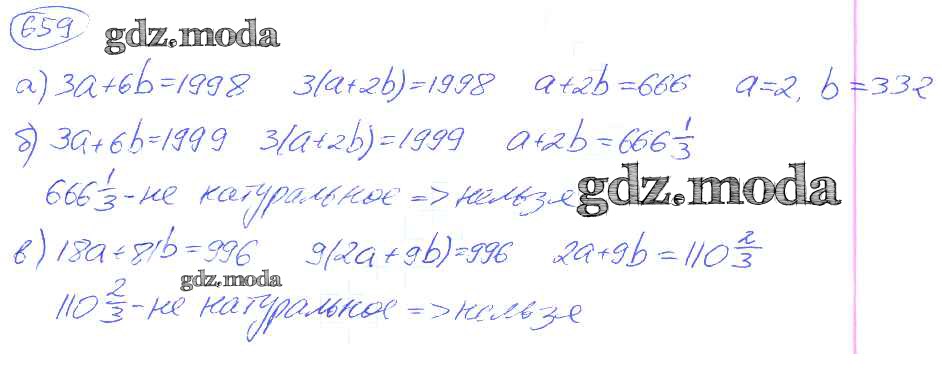 659 gdz.moda
а) 3a+6b=1998 3(a+2b)=1998 a+2b=666 a=2, b=332
б) 3a+6b=1999 3(a+2b)=1999 a+2b=666 1/3
666 1/3 - не натуральное => нельзя gdz.moda
в) 18a+81b=996 9(2a+9b)=996 2a+9b=110 2/3
gdz.moda
110 2/3 - не натуральное => нельзя